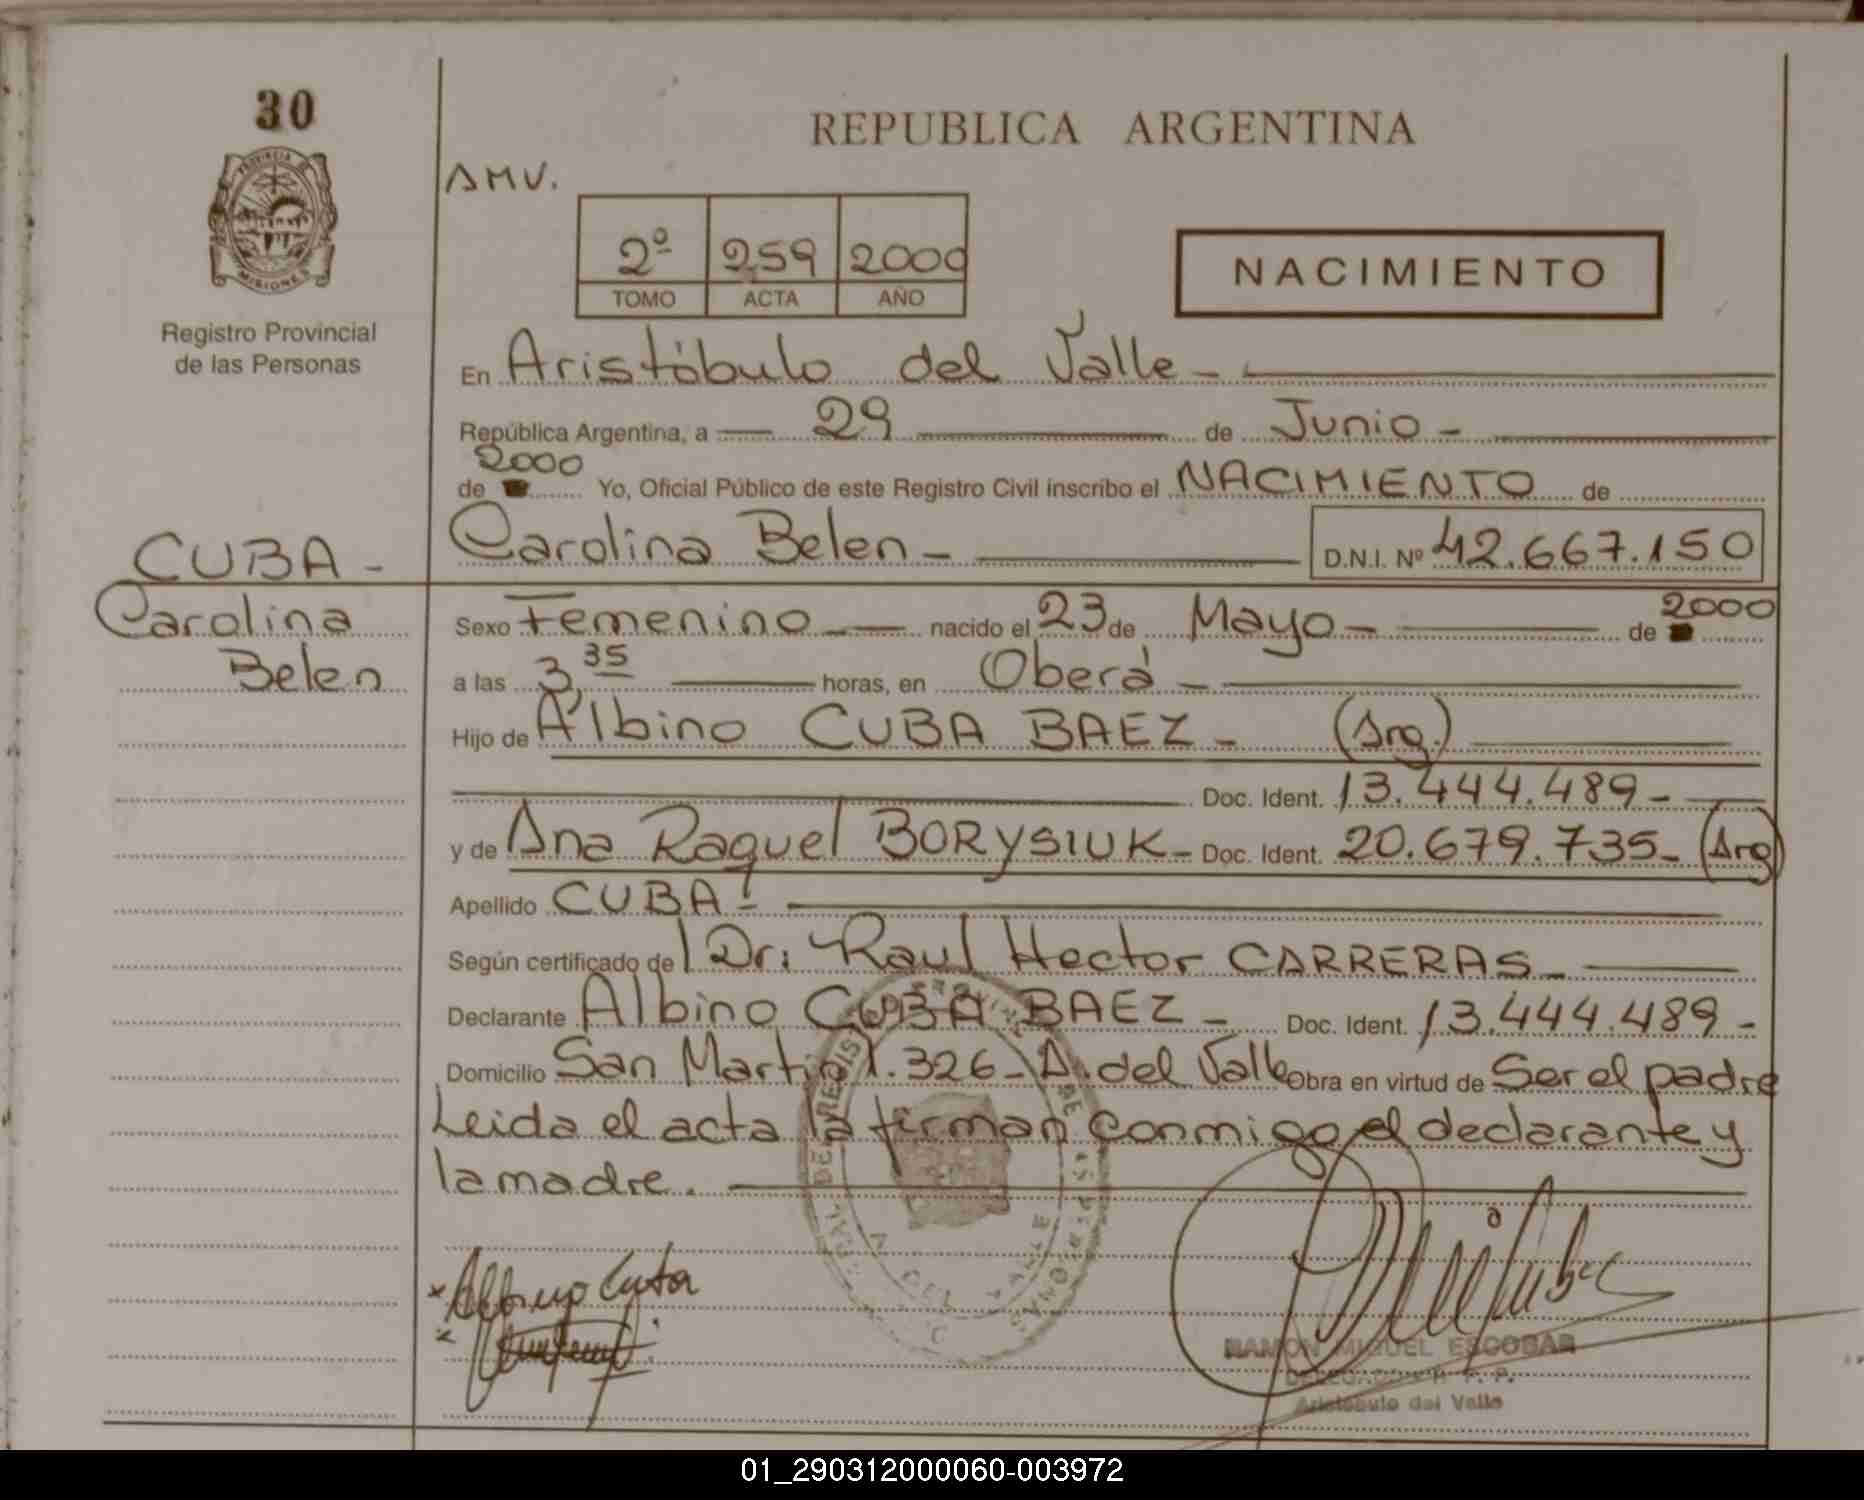 30
PROVINCIA DE
MISIONES
Registro Provincial
de las Personas
REPUBLICA ARGENTINA
AMV.
2º 259 2000
TOMO ACTA AÑO
NACIMIENTO
En Aristóbulo del Valle -
República Argentina, a 29 de Junio -
2000
de Yo, Oficial Público de este Registro Civil inscribo el NACIMIENTO de
CUBA -
Carolina Belen - D.N.I. Nº 42.667.150
Carolina
Belen
Sexo Femenino - nacido el 23 de Mayo - de 2000
a las 3,35 horas, en Oberá -
Hijo de Albino CUBA BAEZ - (Arg.)
Doc. Ident. 13.444.489 -
y de Ana Raquel BORYSIUK - Doc. Ident. 20.679.735 - (Arg)
Apellido CUBA -
Según certificado de Dr: Raul Hector CARRERAS -
Declarante Albino CUBA BAEZ - Doc. Ident. 13.444.489 -
Domicilio San Martin 1.326 - A. del Valle Obra en virtud de Ser el padre
Leida el acta la firman conmigo el declarante y
la madre.
RAMON MIGUEL ESCOBAR
Aristobulo del Valle
01_290312000060-003972